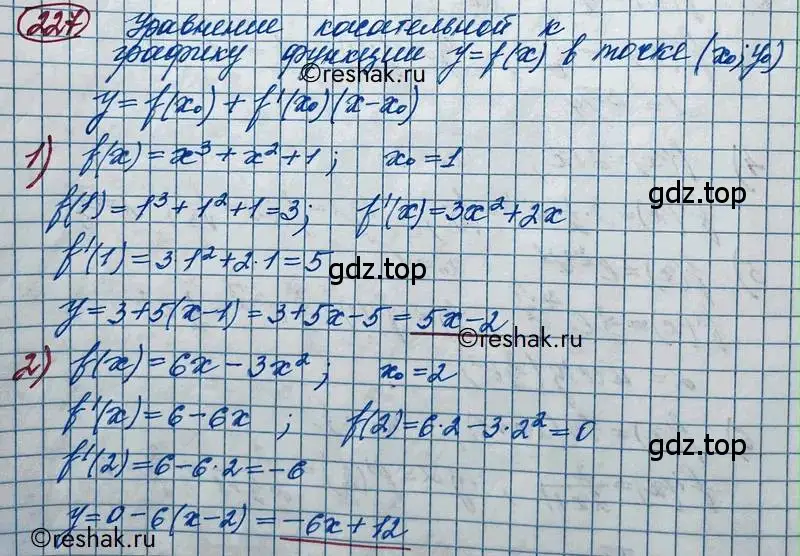 227 Уравнение касательной к
графику функции y=f(x) в точке (x₀; y₀)
©reshak.ru
y = f(x₀) + f'(x₀)(x-x₀)
1) f(x) = x³ + x² + 1 ; x₀ = 1
gdz.top
f(1) = 1³ + 1² + 1 = 3; f'(x) = 3x² + 2x
f'(1) = 3·1² + 2·1 = 5
gdz.top
y = 3 + 5(x-1) = 3 + 5x - 5 = 5x - 2
©reshak.ru
2) f(x) = 6x - 3x² ; x₀ = 2
f'(x) = 6 - 6x ; f(2) = 6·2 - 3·2² = 0
gdz.top
f'(2) = 6 - 6·2 = -6
y = 0 - 6(x-2) = -6x + 12
©reshak.ru